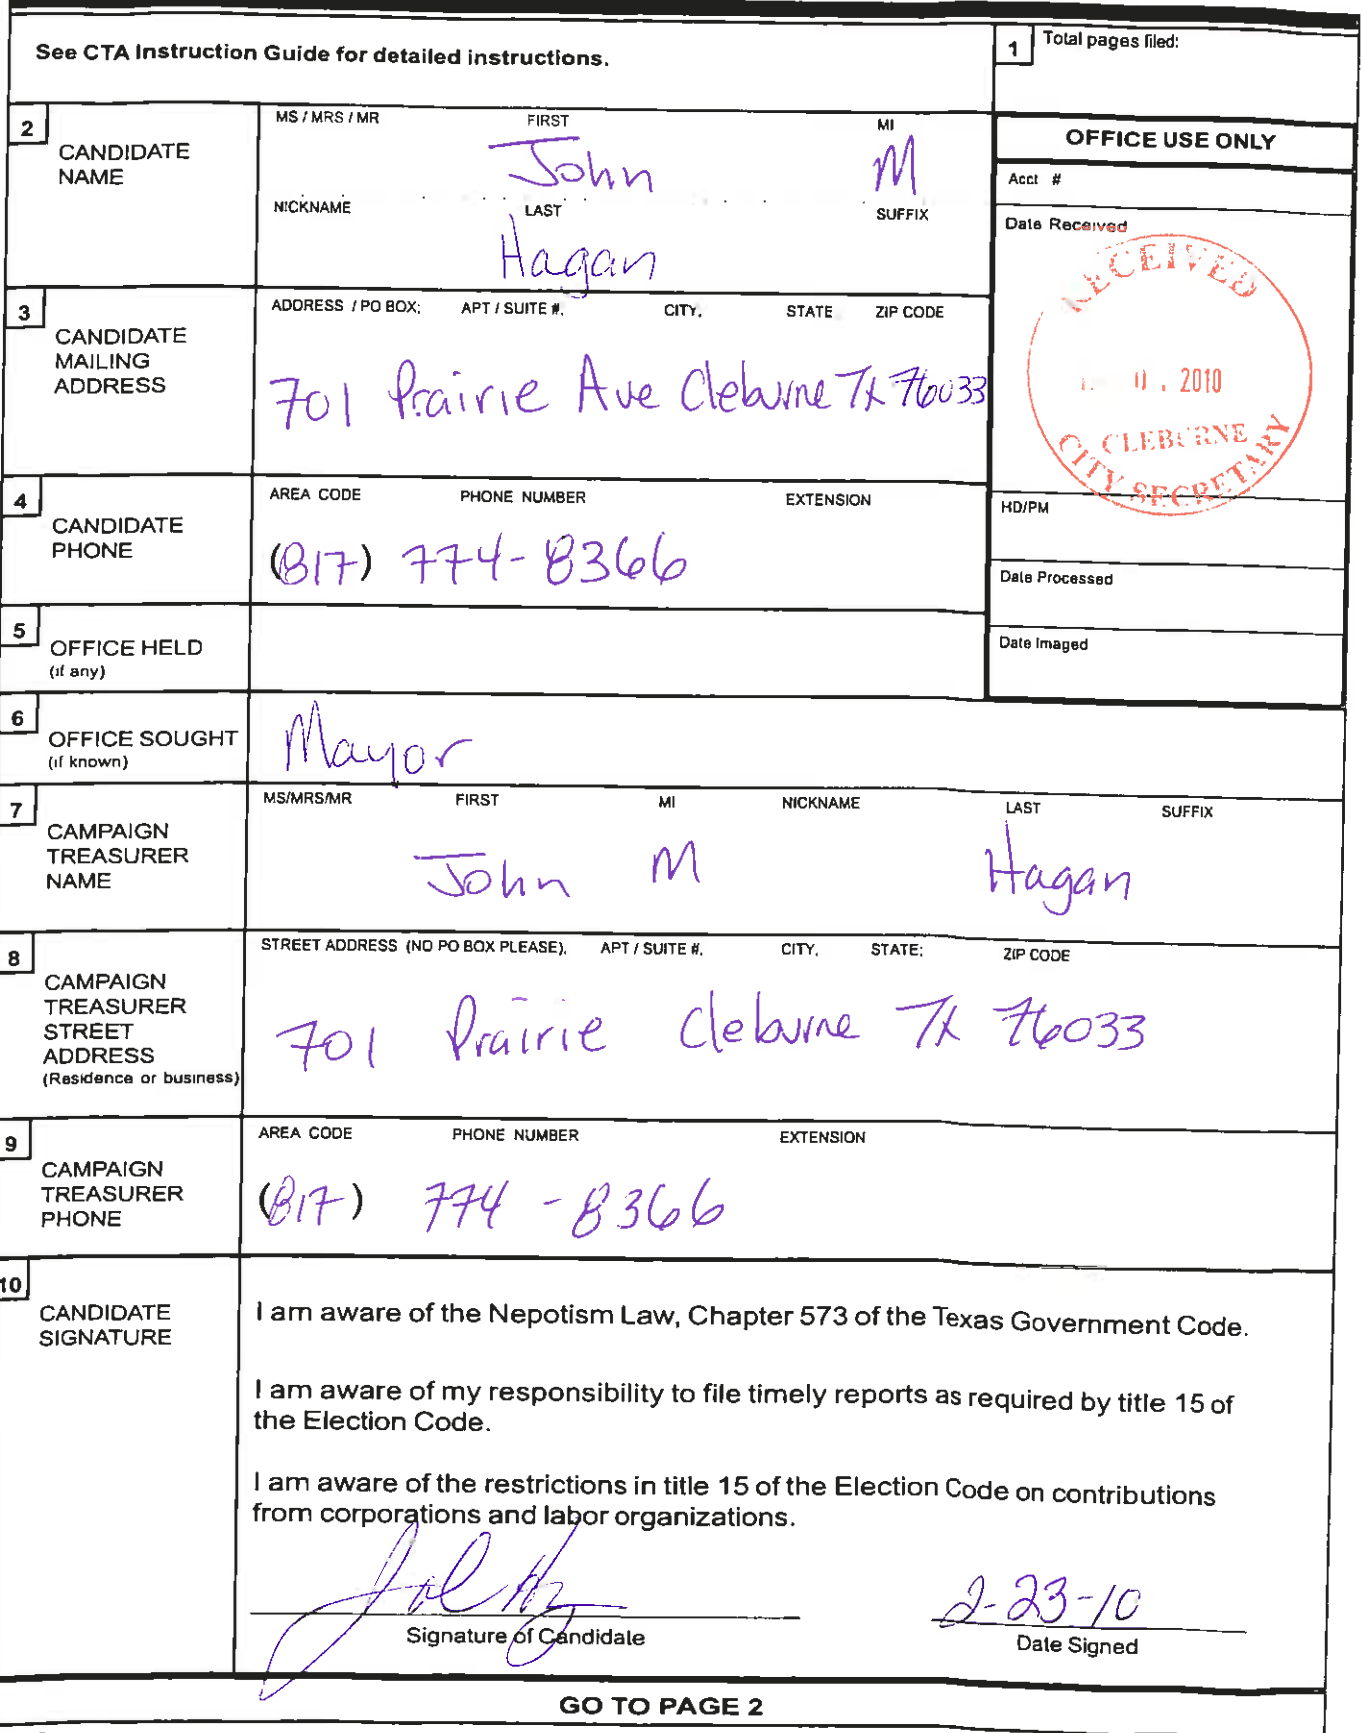 See CTA Instruction Guide for detailed instructions.
1 Total pages filed:
2 CANDIDATE NAME
MS / MRS / MR FIRST MI
John M
NICKNAME LAST SUFFIX
Hagan
OFFICE USE ONLY
Acct #
Date Received
RECEIVED
2010
CLEBURNE
CITY SECRETARY
HD/PM
Date Processed
Date Imaged
3 CANDIDATE MAILING ADDRESS
ADDRESS / PO BOX; APT / SUITE #, CITY, STATE ZIP CODE
701 Prairie Ave Cleburne TX 76033
4 CANDIDATE PHONE
AREA CODE PHONE NUMBER EXTENSION
(817) 774-8366
5 OFFICE HELD
(if any)
6 OFFICE SOUGHT
(if known)
Mayor
7 CAMPAIGN TREASURER NAME
MS/MRS/MR FIRST MI NICKNAME LAST SUFFIX
John M Hagan
8 CAMPAIGN TREASURER STREET ADDRESS
(Residence or business)
STREET ADDRESS (NO PO BOX PLEASE), APT / SUITE #, CITY, STATE; ZIP CODE
701 Prairie Cleburne TX 76033
9 CAMPAIGN TREASURER PHONE
AREA CODE PHONE NUMBER EXTENSION
(817) 774-8366
10 CANDIDATE SIGNATURE
I am aware of the Nepotism Law, Chapter 573 of the Texas Government Code.
I am aware of my responsibility to file timely reports as required by title 15 of
the Election Code.
I am aware of the restrictions in title 15 of the Election Code on contributions
from corporations and labor organizations.
2-23-10
Signature of Candidate
Date Signed
GO TO PAGE 2